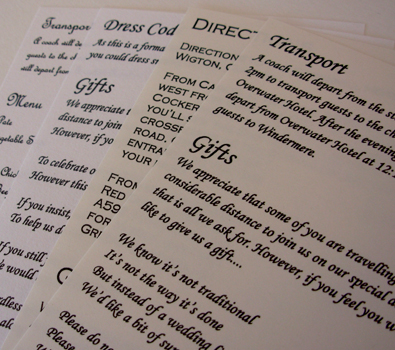 Transpor
A coach will de
guests to the c
still depart from
Menu
getable S
If you still
We would
Dress Cod
As this is a forma
you could dress sm
Gifts
We appreciate th
distance to join
However, if yo
To celebrate o
However this
If you insist,
To help us d
DIRECT
DIRECTION
WIGTON, C
FROM CA
WEST FR
COCKER
YOU'LL S
CROSSE
ROAD,
ENTRA
YOUR
FROM
RED
A59
FOR
GR
Transport
A coach will depart from the st
2pm to transport guests to the ch
Overwater Hotel. After the evening
depart from Overwater Hotel at 12:
guests to Windermere.
Gifts
We appreciate that some of you are travelling
considerable distance to join us on our special d
that is all we ask for. However, if you feel you w
like to give us a gift....
We know it's not traditional
It's not the way it's done
But instead of a wedding l
We'd like a bit of su
Please do no
Please